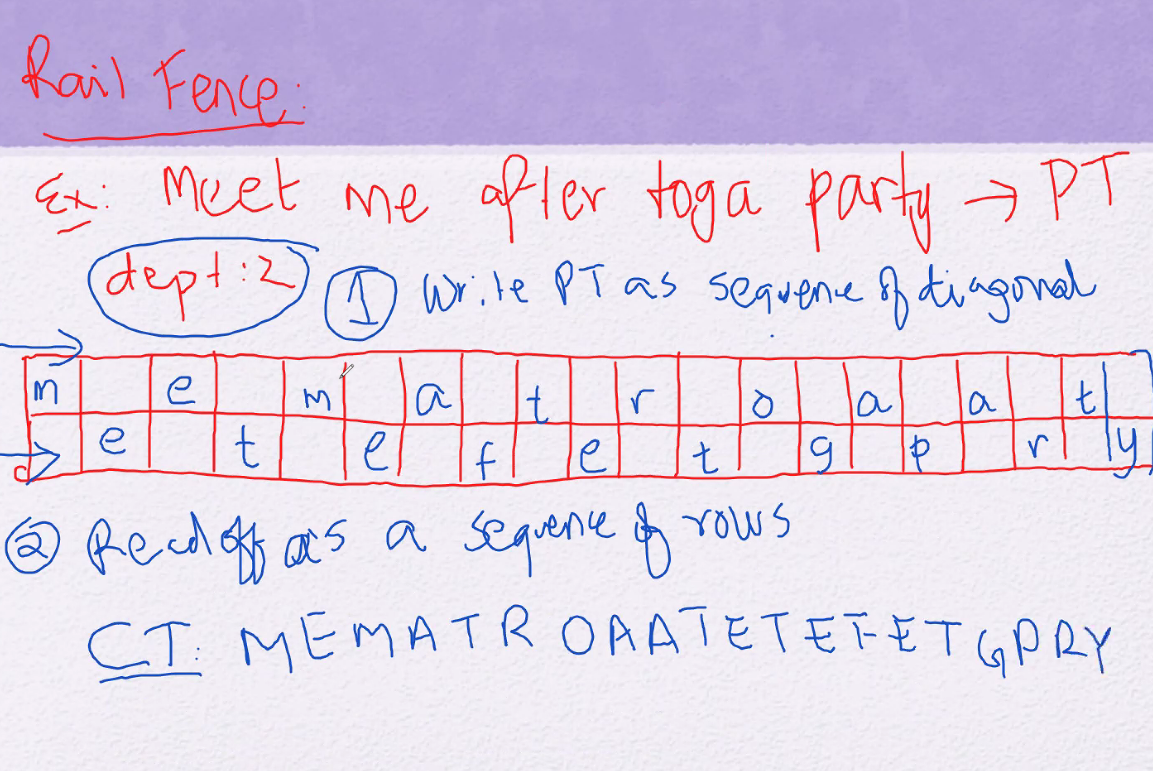 Rail Fence:
Ex: Meet me after toga party → PT
dept:2 ① Write PT as sequence of diagonal
m e m a t r o a a t
e t e f e t g p r y
② Read off as a sequence of rows
CT: MEMATROAATETEFETGPRY